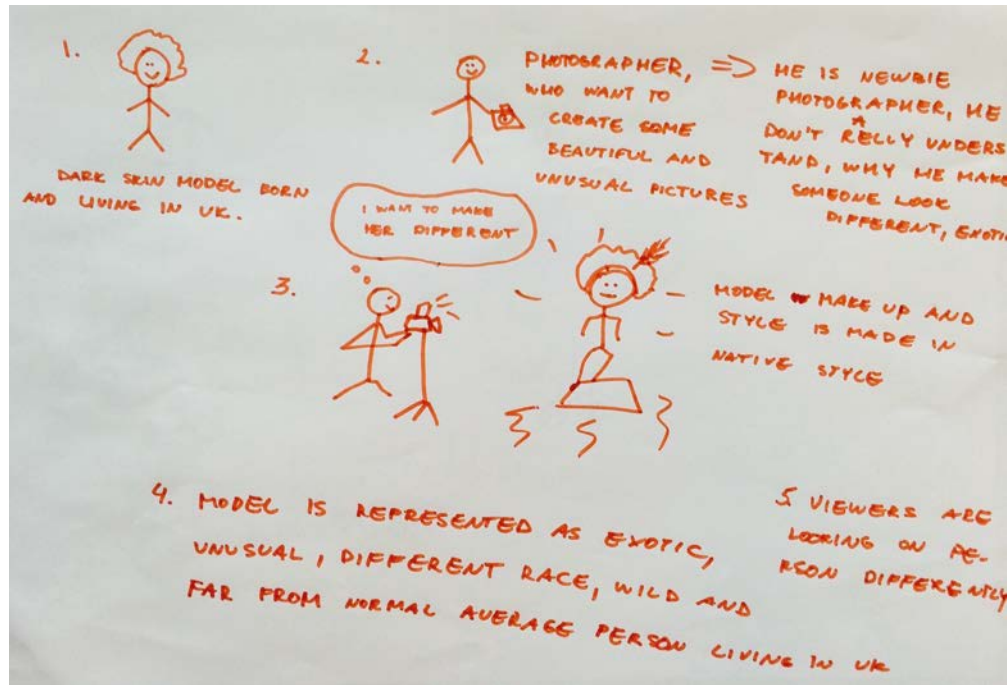 1.
DARK SKIN MODEL BORN
AND LIVING IN UK.
2.
PHOTOGRAPHER,
WHO WANT TO
CREATE SOME
BEAUTIFUL AND
UNUSUAL PICTURES
=> HE IS NEWBIE
PHOTOGRAPHER, HE
DON'T RELLY UNDERS
TAND, WHY HE MAKE
SOMEONE LOOK
DIFFERENT, EXOTIC
3.
I WANT TO MAKE
HER DIFFERENT
MODEL MAKE UP AND
STYLE IS MADE IN
NATIVE STYLE
4. MODEL IS REPRESENTED AS EXOTIC,
UNUSUAL, DIFFERENT RACE, WILD AND
FAR FROM NORMAL AVERAGE PERSON LIVING IN UK
5. VIEWERS ARE
LOOKING ON PE-
RSON DIFFERENTLY